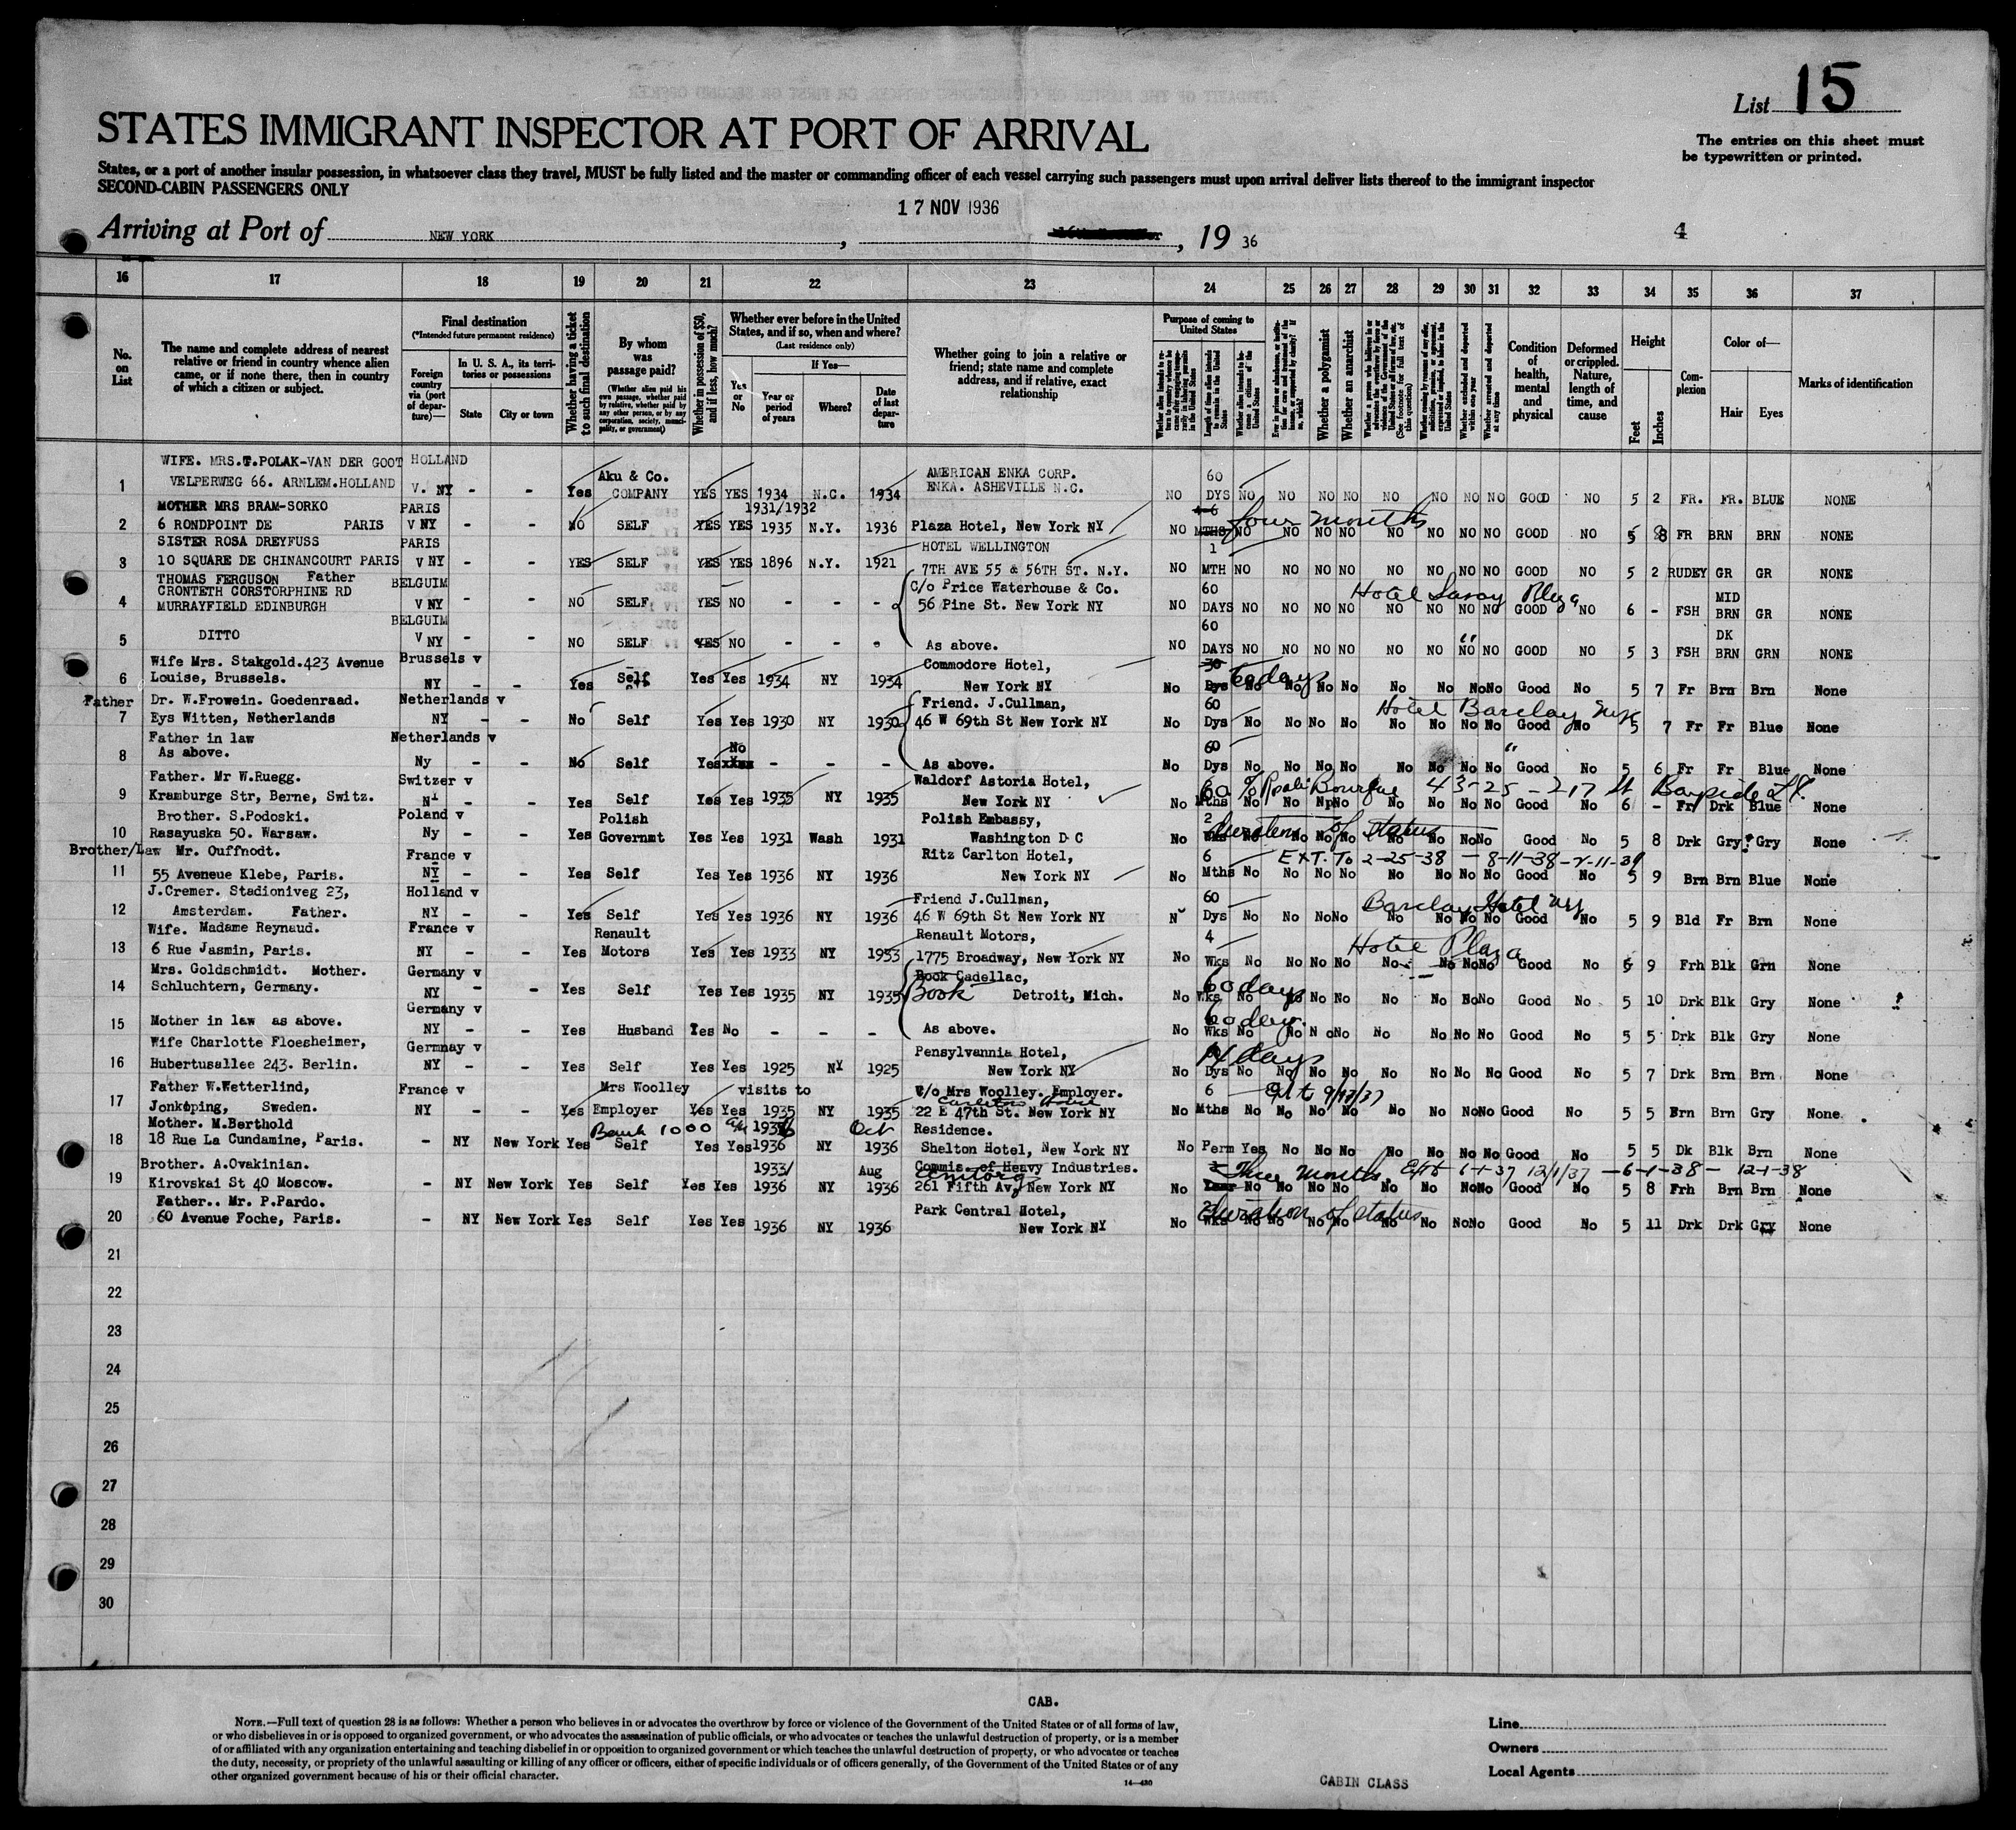 List 15
The entries on this sheet must
be typewritten or printed.
STATES IMMIGRANT INSPECTOR AT PORT OF ARRIVAL
States, or a port of another insular possession, in whatsoever class they travel, MUST be fully listed and the master or commanding officer of each vessel carrying such passengers must upon arrival deliver lists thereof to the immigrant inspector
SECOND-CABIN PASSENGERS ONLY
17 NOV 1936
Arriving at Port of NEW YORK , , 19 36
4
16 17 18 19 20 21 22 23 24 25 26 27 28 29 30 31 32 33 34 35 36 37
No. on List
The name and complete address of nearest relative or friend in country whence alien came, or if none there, then in country of which a citizen or subject.
Final destination
(*Intended future permanent residence)
Foreign country via (port of departure)—
In U. S. A., its territories or possessions
State
City or town
Whether having a ticket to such final destination
By whom was passage paid?
(Whether alien paid his own passage, whether paid by relative, whether paid by any other person, or by any corporation, society, municipality, or government)
Whether in possession of $50, and if less, how much?
Whether ever before in the United States, and if so, when and where?
(Last residence only)
Yes or No
If Yes—
Year or period of years
Where?
Date of last departure
Whether going to join a relative or friend; state name and complete address, and if relative, exact relationship
Purpose of coming to United States
Whether a polygamist
Whether an anarchist
Condition of health, mental and physical
Deformed or crippled. Nature, length of time, and cause
Height
Feet
Inches
Complexion
Color of—
Hair
Eyes
Marks of identification
WIFE. MRS.T.POLAK-VAN DER GOOT HOLLAND Aku & Co. AMERICAN ENKA CORP. 60
1 VELPERWEG 66. ARNLEM.HOLLAND V. NY - - Yes COMPANY YES YES 1934 N.C. 1934 ENKA. ASHEVILLE N.C. NO DYS NO NO NO NO NO NO NO NO GOOD NO 5 2 FR. FR. BLUE NONE
MOTHER MRS BRAM-SORKO PARIS 1931/1932 four months
2 6 RONDPOINT DE PARIS V NY - - NO SELF YES YES 1935 N.Y. 1936 Plaza Hotel, New York NY NO MTHS NO NO NO NO NO NO NO NO GOOD NO 5 8 FR BRN BRN NONE
SISTER ROSA DREYFUSS PARIS HOTEL WELLINGTON 1
3 10 SQUARE DE CHINANCOURT PARIS V NY - - YES SELF YES YES 1896 N.Y. 1921 7TH AVE 55 & 56TH ST. N.Y. NO MTH NO NO NO NO NO NO NO NO GOOD NO 5 2 RUDEY GR GR NONE
THOMAS FERGUSON Father BELGUIM C/o Price Waterhouse & Co. 60 Hotel Savoy Plaza
CRONTETH CORSTORPHINE RD
4 MURRAYFIELD EDINBURGH V NY - - NO SELF YES NO - - - 56 Pine St. New York NY NO DAYS NO NO NO NO NO NO NO NO GOOD NO 6 - FSH MID BRN GR NONE
BELGUIM 60 "
5 DITTO V NY - - NO SELF YES NO - - - As above. NO DAYS NO NO NO NO NO NO NO NO GOOD NO 5 3 FSH DK BRN GRN NONE
Wife Mrs. Stakgold.423 Avenue Brussels v Commodore Hotel, 30 60 days
6 Louise, Brussels. NY - - Yes Self Yes Yes 1934 NY 1934 New York NY No Dys No No No No No No No No Good No 5 7 Fr Brn Brn None
Father Dr. W.Frowein. Goedenraad. Netherlands v Friend. J.Cullman, 60 Hotel Barclay NYC
7 Eys Witten, Netherlands NY - - No Self Yes Yes 1930 NY 1930 46 W 69th St New York NY No Dys No No No No No No No No Good No 5 7 Fr Fr Blue None
Father in law Netherlands v No 60 "
8 As above. Ny - - No Self Yes - - - As above. No Dys No No No No No No No No Good No 5 6 Fr Fr Blue None
Father. Mr W.Ruegg. Switzer v Waldorf Astoria Hotel, 43-25-217 St Bayside L.I.
9 Kramburge Str, Berne, Switz. - - Yes Self Yes Yes 1935 NY 1935 New York NY No Mths No No No No No No No No Good No 6 - Fr Drk Blue None
Brother. S.Podoski. Poland v Polish Polish Embassy, 2 duration of status
10 Rasayuska 50. Warsaw. Ny - - Yes Governmt Yes Yes 1931 Wash 1931 Washington D C No Wks No No No No No No No No Good No 5 8 Drk Gry Gry None
Brother/Law Mr. Ouffnodt. France v Ritz Carlton Hotel, 6 EXT. To 2-25-38 - 8-11-38-2-11-39
11 55 Aveneue Klebe, Paris. NY - - Yes Self Yes Yes 1936 NY 1936 New York NY No Mths No No No No No No No No Good No 5 9 Brn Brn Blue None
J.Cremer. Stadioniveg 23, Holland v Friend J.Cullman, 60 Barclay Hotel NY
12 Amsterdam. Father. NY - - Yes Self Yes Yes 1936 NY 1936 46 W 69th St New York NY Dys No No No No No No No No Good No 5 9 Bld Fr Brn None
Wife. Madame Reynaud. France v Renault Renault Motors, 4 Hotel Plaza
13 6 Rue Jasmin, Paris. NY - - Yes Motors Yes Yes 1933 NY 1933 1775 Broadway, New York NY No Wks No No No No No No No No Good No 5 9 Frh Blk Grn None
Mrs. Goldschmidt. Mother. Germany v Book Cadellac, 60 days
14 Schluchtern, Germany. NY - - Yes Self Yes Yes 1935 NY 1935 Book Detroit, Mich. No Wks No No No No No No No No Good No 5 10 Drk Blk Gry None
Germany v 60 days
15 Mother in law as above. NY - - Yes Husband Yes No - - - As above. No Wks No No No No No No No No Good No 5 5 Drk Blk Gry None
Wife Charlotte Floesheimer, Germnay v Pensylvannia Hotel, 14 days
16 Hubertusallee 243. Berlin. NY - - Yes Self Yes Yes 1925 NY 1925 New York NY No Dys No No No No No No No No Good No 5 7 Drk Brn Brn None
Father W.Wetterlind, France v Mrs Woolley visits to C/o Mrs Woolley. Employer. 6
Carlton House
17 Jonkoping, Sweden. NY - - Yes Employer Yes Yes 1935 NY 1935 22 E 47th St. New York NY No Mths No No No No No No No No Good No 5 5 Brn Brn Gry None
Mother. M.Berthold Bank 1000 Oct Residence.
18 18 Rue La Cundamine, Paris. - NY New York Yes Self Yes Yes 1936 NY 1936 Shelton Hotel, New York NY No Perm Yes No No No No No No No Good No 5 5 Dk Blk Brn None
Brother. A.Ovakinian. 1933/ Aug Commis. of Heavy Industries. Three months. Ext 6-1-37 12/1/37 -6-1-38- 12-1-38
Amtorg
19 Kirovskai St 40 Moscow. - NY New York Yes Self Yes Yes 1936 NY 1936 261 Fifth Av, New York NY No Year No No No No No No No No Good No 5 8 Frh Brn Brn None
Father.. Mr. P.Pardo. Park Central Hotel, 2 duration of status
20 60 Avenue Foche, Paris. - NY New York Yes Self Yes Yes 1936 NY 1936 New York NY No Wks No No No No No No No No Good No 5 11 Drk Drk Gry None
21
22
23
24
25
26
27
28
29
30
CAB.
NOTE.—Full text of question 28 is as follows: Whether a person who believes in or advocates the overthrow by force or violence of the Government of the United States or of all forms of law,
or who disbelieves in or is opposed to organized government, or who advocates the assassination of public officials, or who advocates or teaches the unlawful destruction of property, or is a member
of or affiliated with any organization entertaining and teaching disbelief in or opposition to organized government or which teaches the unlawful destruction of property, or who advocates or teaches
the duty, necessity, or propriety of the unlawful assaulting or killing of any officer or officers, either of specific individuals or of officers generally, of the Government of the United States or of any
other organized government because of his or their official character.
14—430
CABIN CLASS
Line
Owners
Local Agents